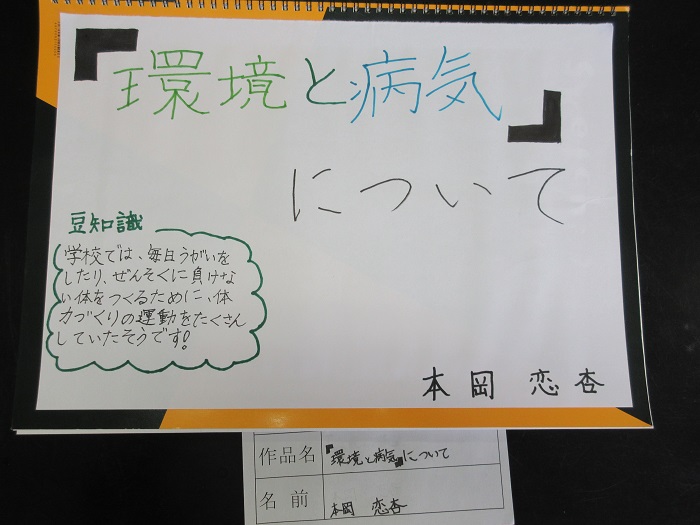 『環境と病気』
について
豆知識
学校では、毎日うがいを
したり、ぜんそくに負けな
い体をつくるために、体
力づくりの運動をたくさん
していたそうです!
本岡 恋杏
作品名 『環境と病気』について
名前 本岡 恋杏